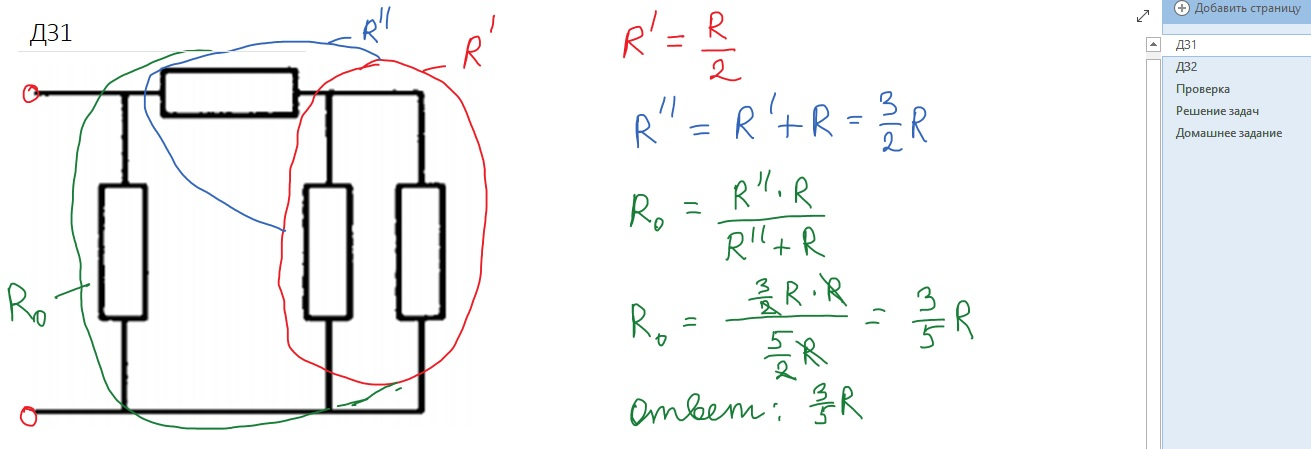 ДЗ1
R''
R'
R₀
R' = R/2
R'' = R' + R = 3/2 R
R₀ = (R'' · R)/(R'' + R)
R₀ = (3/2 R · R)/(5/2 R) = 3/5 R
ответ: 3/5 R
Добавить страницу
ДЗ1
ДЗ2
Проверка
Решение задач
Домашнее задание